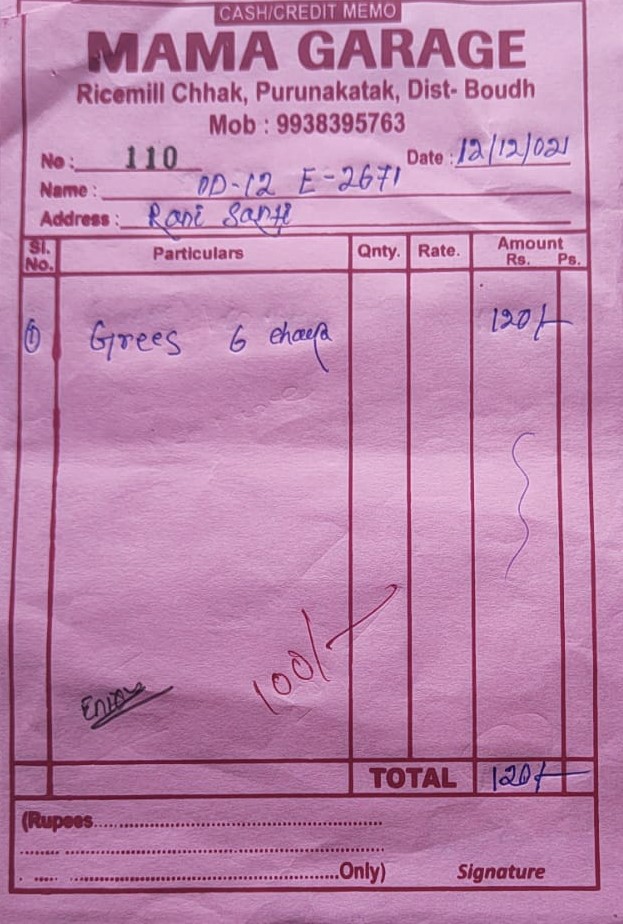 CASH/CREDIT MEMO
MAMA GARAGE
Ricemill Chhak, Purunakatak, Dist- Boudh
Mob : 9938395763
No : 110 Date : 12/12/021
Name : OD-12 E-2671
Address : Rani Santi
Sl. No. Particulars Qnty. Rate. Amount Rs. Ps.
① Grees 6 120/-
100/-
TOTAL 120/-
(Rupees
Only) Signature